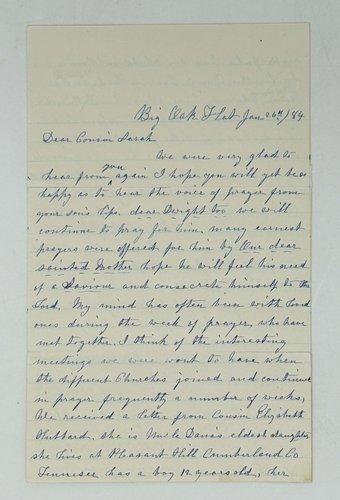 Big Oak Flat Jan 26th/84
Dear Cousin Sarah
We were very glad to
hear from you again I hope you will yet be so
happy as to hear the voice of prayer from
your son's lips, dear Dwight too we will
continue to pray for him, many earnest
prayers were offered for him by Our dear
sainted Mother hope he will feel his need
of a Saviour and consecrate himself to the
Lord. My mind has often been with loved
ones during the week of prayer, who have
met together. I think of the interesting
meetings we were wont to have when
the different Churches joined and continued
in prayer frequently a number of weeks,
We received a letter from Cousin Elizabeth
Hubbard, she is Uncle Davis eldest daughter
she lives at Pleasant Hill Cumberland Co
Tennesee has a boy 12 years old, her